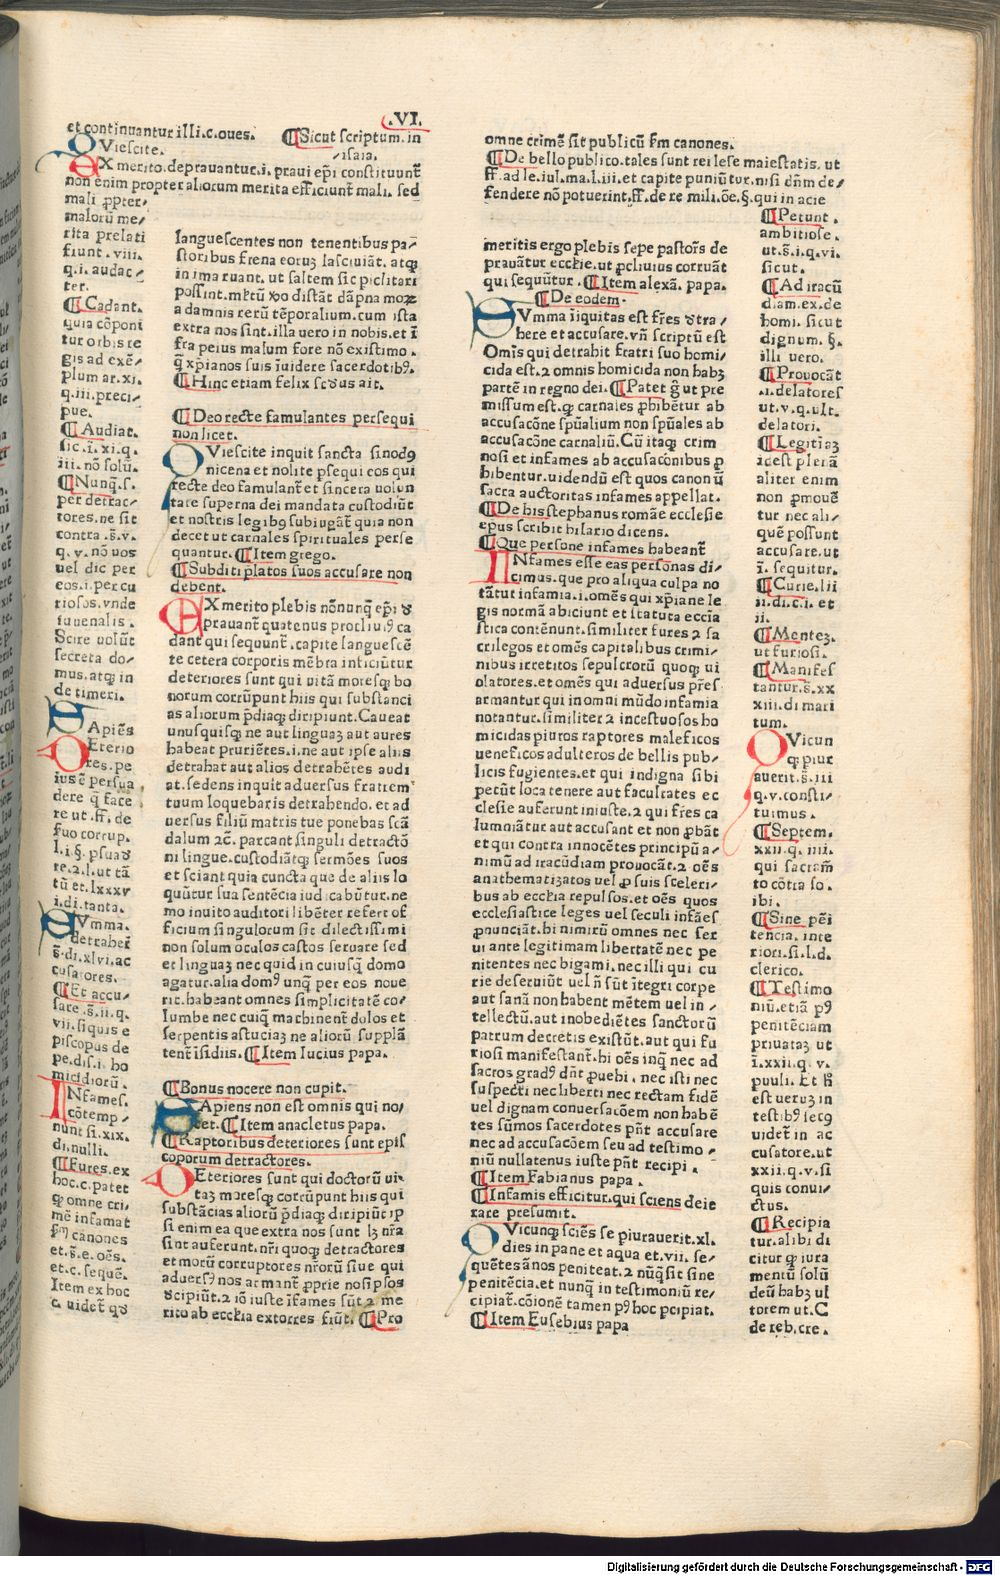 .VI.
et continuantur illi.c.oues. ¶Sicut scriptum.in
Viescite. isaia.
EX merito.deprauantur.i. praui epi constituunt̄
non enim propter aliorum merita efficiunt̄ mali. sed
mali ꝓpter
malorū me/
rita prelati
fiunt.viii.
q.i.audac/
ter.
¶Cadant.
quia cōponi
tur orbis re
gis ad exē/
plum ar.xi.
q.iii.preci/
pue.
¶Audiat.
sic.ī.xi.q.
iii.nō solū.
¶Nunꝗ.s.
per detrac/
tores.ne sit
contra.s̄.v.
q.v.nō uos
uel dic per
eos.i.per cu
riosos.vnde
iuuenalis.
Scire uolūt
secreta do/
mus.atꝗ in
de timeri.
SApiēs
DEterio
res.pe
ius ē persua
dere ꝗ̄ face
re ut.ff.de
suo corrup.
l.i.§.psuad
re.2.l.ut tā
tū et.lxxxv
i.di.tanta.
SVmma.
detraher
s̄.di.xlvi.ac
cusatores.
¶Et accu/
sare.s̄.ii.q.
vii.si quis e
piscopus de
pe.dis.i.ho
micidiorū.
INfames.
cōtemp/
nunt si.xix.
di.nulli.
¶Fures.ex
hoc.c.patet
ꝙ omne cri/
mē infamat
ẜm canones
et.s̄.e.oēs.
et.c.sequē.
Item ex hoc
c.uidet̄ ꝙ
languescentes non tenentibus pa/
storibus frena eorum lasciuiāt.atꝗ
in ima ruant.ut saltem sic piclitari
possint.mltū xo distāt dāpna moꝝ
a damnis rerū tēporalium.cum ista
extra nos sint.illa uero in nobis.et ī
fra peius malum fore nō existimo.
ꝗ̄ xp̄ianos suis īuidere sacerdotibꝰ.
¶Hinc etiam felix scd̄us ait.
¶Deo recte famulantes persequi
non licet.
QViescite inquit sancta sinodꝰ
nicena et nolite ꝑsequi eos qui
recte deo famulant̄ et sincera uolun
tate superna dei mandata custodiūt
et nostris legibꝰ subiugāt̄ quia non
decet ut carnales spirituales perse
quantur.¶Item grego.
¶Subditi p̄latos suos accusare non
debent.
EX merito plebis nōnunꝗ epi d
prauant̄ quatenus procliuiꝰ ca
dant qui sequunt̄.capite languescē
te cetera corporis mēbra inficiūtur
deteriores sunt qui uitā moresꝗ bo
norum corrūpunt hiis qui substanci
as aliorum p̄diaꝗ diripiunt.Caueat
unusquisꝗ ne aut linguaʒ aut aures
habeat pruriētes.i.ne aut ipse aliis
detrahat aut alios detrahētes audi
at.sedens inquit aduersus fratrem
tuum loquebaris detrahendo.et ad
uersus filiū matris tue ponebas scā
dalum 2c̄.parcant singuli detractō
ni lingue.custodiātꝗ sermōes suos
et sciant quia cuncta que de aliis lo
quūtur sua sentēcia iudicabūtur.ne
mo inuito auditori libēter refert of
ficium singulorum sit dilectissimi
non solum oculos castos seruare sed
et linguaʒ nec quid in cuiusꝗ domo
agatur.alia domꝰ unꝗ per eos noue
rit.habeant omnes simplicitatē co/
lumbe nec cuiꝗ machinent̄ dolos et
serpentis astuciaʒ ne aliorū supplā
tent̄ īsidiis.¶Item lucius papa.
¶Bonus nocere non cupit.
SApiens non est omnis qui no/
cet.¶Item anacletus papa.
¶Raptoribus deteriores sunt epis
coporum detractores.
DEteriores sunt qui doctorū ui/
taʒ moresꝗ corrūpunt hiis qui
substācias aliorū p̄diaꝗ diripiūt ip
si enim ea que extra nos sunt lʒ nrā
sint auferunt.nr̄i quoꝗ detractores
et morū corruptores nr̄orū siue qui
aduersꝰ nos armant̄ ꝓprie nos ipsos
dcipiūt.2 iō iuste īfames sūt 2 me
rito ab ecclia extorres fiūt.¶Pro
omne crimē sit publicū ẜm canones.
¶De bello publico.tales sunt rei lese maiestatis.ut
ff.ad le.iul.ma.l.iii.et capite puniūtur.nisi dn̄m de/
fendere nō potuerint.ff.de re mili.ōe.§.qui in acie
meritis ergo plebis sepe pastor̄s de
prauātur eccl̄ie.ut ꝓcliuius corruāt
qui sequūtur.¶Item alexā. papa.
¶De eodem.
SVmma īiquitas est fr̄es dtra/
here et accusare.vn̄ scriptū est
Omīs qui detrahit fratri suo homi/
cida est.2 omnis homicida non habʒ
partē in regno dei.¶Patet g̊ ut pre
missum est.ꝙ carnales ꝓhibētur ab
accusacōne sp̄ualium non sp̄uales ab
accusacōne carnaliū.Cū itaꝗ crim
nosi et infames ab accusacōnibus ꝓ
hibentur.uidendū est quos canonū
sacra auctoritas infames appellat.
¶De his stephanus romāe ecclesie
epus scribit hilario dicens.
¶Que persone infames habeant̄
INfames esse eas personas di/
cimus.que pro aliqua culpa no
tātut infamia.i.omēs qui xp̄iane le
gis normā abiciunt et statuta eccīa
stica contēnunt.similiter fures 2 sa
crilegos et omēs capitalibus crimi/
nibus irretitos sepulcrorū quoꝗ ui
olatores.et omēs qui aduersus pr̄es
armantur qui in omni mūdo infamia
notantur.similiter 2 incestuosos ho
micidas piuros raptores maleficos
ueneficos adulteros de bellis pub/
licis fugientes.et qui indigna sibi
petūt loca tenere aut facultates ec
clesie auferunt iniuste.2 qui fr̄es ca
lumniātur aut accusant et non ꝓbāt
et qui contra innocētes principū a/
nimū ad iracūdiam prouocāt.2 oēs
anathematizatos uel ꝓ suis sceleri/
bus ab eccīa repulsos.et oēs quos
ecclesiastice leges uel seculi infāēs
ꝓnunciāt.hi nimirū omnes nec ser
ui ante legitimam libertatē nec pe
nitentes nec bigami.nec illi qui cu
rie deseruiūt uel n̄ sūt ītegri corpe
aut sanā non habent mētem uel in/
tellectū.aut inobediētes sanctorū
patrum decretis existūt.aut qui fu
riosi manifestant̄.hi oēs inꝗ nec ad
sacros gradꝰ dn̄t ꝓuehi.nec isti nec
suspecti nec liberti nec rectam fidē
uel dignam conuersacōem non habē
tes sūmos sacerdotes pn̄t accusare
nec ad accusacōem seu ad testimo/
niū nullatenus iuste pn̄t recipi.
¶Item Fabianus papa.
¶Infamis efficitur.qui sciens deie
rare presumit.
QVicunꝗ sciēs se piurauerit.xl.
dies in pane et aqua et.vii.se/
quētes ānos peniteat.2 nūꝗ sit sine
penitēcia.et nunꝗ in testimoniū re/
cipiat̄.cōionē tamen pꝰ hoc ꝑcipiat.
¶Item Eusebius papa
¶Petunt.
ambitiose.
ut.s̄.i.q.vi.
sicut.
¶Ad iracū
diam.ex.de
homi.sicut
dignum.§.
illi uero.
¶Prouocāt
.i.delatores
ut.v.q.ult.
delatori.
¶Legitīaʒ
id est plenā
aliter enim
non ꝓmouē
tur nec ali/
quē possunt
accusare.ut
ī.sequitur.
¶Curie.lii
ii.di.c.i.et
ii.
¶Menteʒ.
ut furiosi.
¶Manifes
tantur.s̄.xx
xiii.di mari
tum.
QVicun
ꝗ piur
auerit.s̄.iii
q.v.consti/
tuimus.
¶Septem.
xxii.q.iiii.
qui sacram̄
to cōtra so.
ibi.
¶Sine pēi
tencia.inte
riori.si.l.d.
clerico.
¶Testimo
niū.etiā pꝰ
penitēciam
priuataʒ ut
ī.xxii.q.v.
puuli.Et h̄
est ueruʒ in
testibꝰ secꝰ
uidet̄ in ac
cusatore.ut
xxii.q.v.si
quis conui/
ctus.
¶Recipia
tur.alibi di
citur ꝙ iura
mentū solū
deū habʒ ul
torem ut.C
de reb.cre.
Digitalisierung gefördert durch die Deutsche Forschungsgemeinschaft - DFG